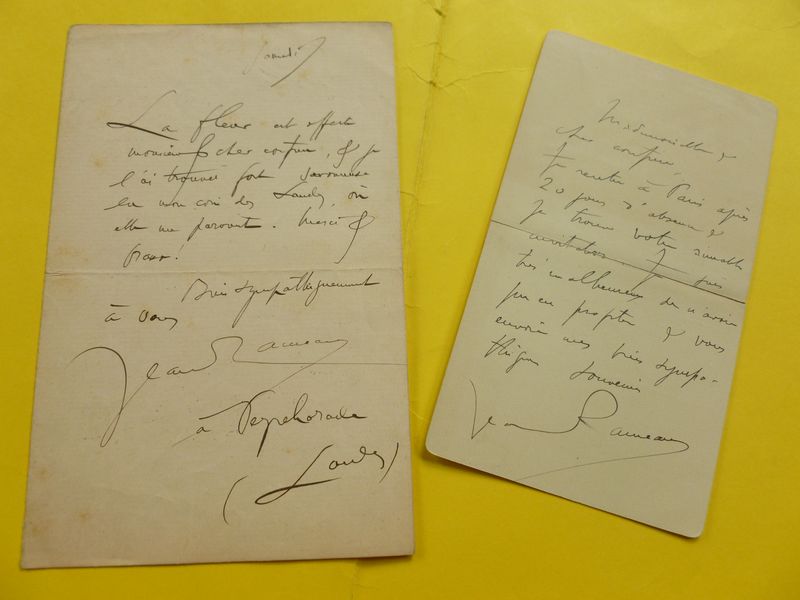 Samedi
La fleur est offerte
monsieur & cher confrère, & je
l'ai trouvée fort savoureuse
en mon coin des Landes, où
elle me parvint. Merci &
bravo!
Bien sympathiquement
à vous
Jean Rameau
à Peyrehorade
(Landes)
Mademoiselle &
cher confrère,
Je rentre à Paris après
20 jours d'absence &
je trouve votre aimable
invitation. Je suis
très malheureux de n'avoir
pu en profiter & vous
envoie mes bien sympa-
thiques souvenirs
Jean Rameau